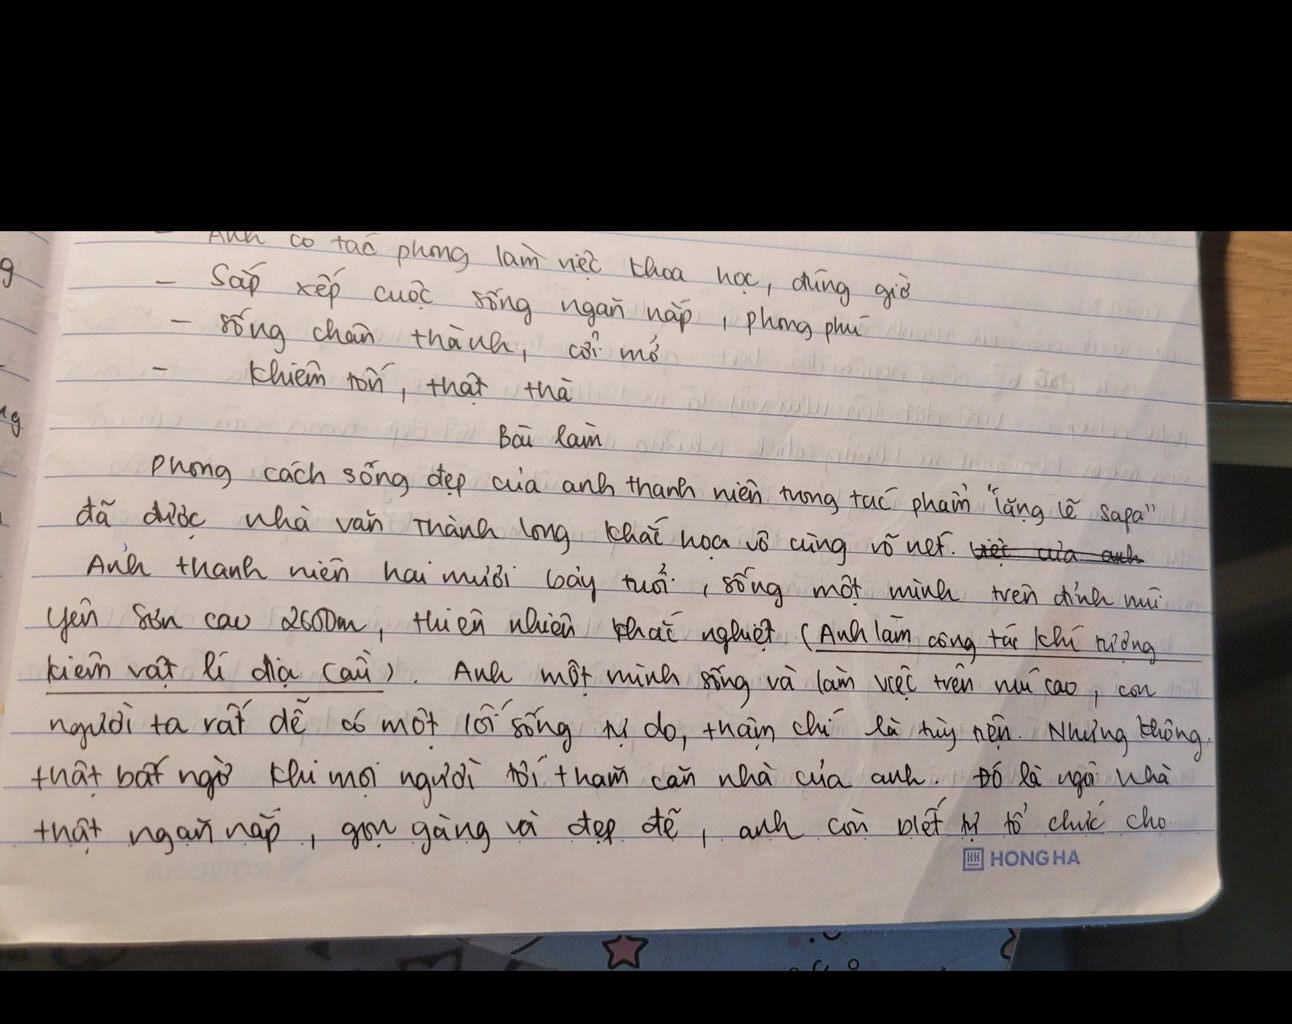 Anh có tác phong làm việc khoa học, đúng giờ
- Sắp xếp cuộc sống ngăn nắp, phong phú
- sống chân thành, cởi mở
- khiêm tốn, thật thà
Bài làm
Phong cách sống đẹp của anh thanh niên trong tác phẩm "lặng lẽ sapa"
đã được nhà văn Thành long khắc họa vô cùng rõ nét. việc của anh
Anh thanh niên hai mươi bảy tuổi, sống một mình trên đỉnh núi
Yên Sơn cao 2600m, thiên nhiên khắc nghiệt (Anh làm công tác khí tượng
kiêm vật lí địa cầu). Anh một mình sống và làm việc trên núi cao, con
người ta rất dễ có một lối sống tự do, thậm chí là tùy tiện. Nhưng không
thật bất ngờ khi mọi người tới thăm căn nhà của anh. Đó là ngôi nhà
thật ngăn nắp, gọn gàng và đẹp đẽ, anh còn biết tự tổ chức cho
HONG HA
g
ng